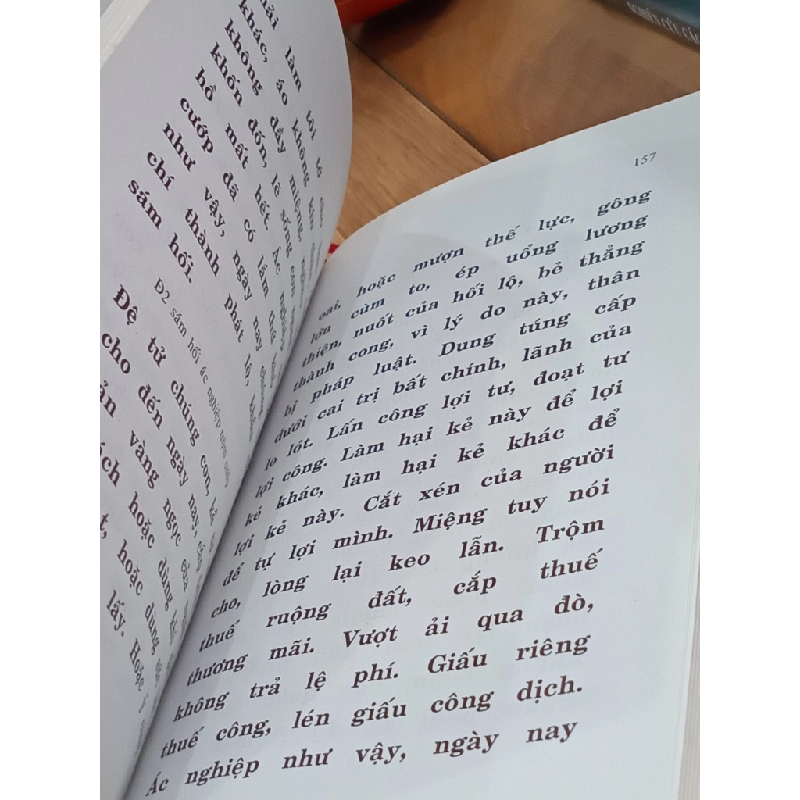 làm tôi tớ
khác, áo không kín
không đầy miệng,
khốn đốn, lẽ sống
bồ mất hết. Ác nghiệp
cướp đã có lắm thứ
như vậy, ngày nay
chí thành phát lồ,
sám hối.
Đ2 sám hối ác nghiệp trộm
Đệ tử chúng con,
cho đến ngày nay,
vàng ngọc
hoặc dùng
hoặc dùng
lấy. Hoặc
157
oai, hoặc mượn thế lực, gông
lớn cùm to, ép uổng lương
thiện, nuốt của hối lộ, bẻ thẳng
thành cong, vì lý do này, thân
bị pháp luật. Dung túng cấp
dưới cai trị bất chính, lãnh của
lo lót. Lấn công lợi tư, đoạt tư
lợi công. Làm hại kẻ này để lợi
kẻ khác, làm hại kẻ khác để
lợi kẻ này. Cắt xén của người
để tự lợi mình. Miệng tuy nói
cho, lòng lại keo lẫn. Trộm
thuế ruộng đất, cắp thuế
thương mãi. Vượt ải qua đò,
không trả lệ phí. Giấu riêng
thuế công, lén giấu công dịch.
Ác nghiệp như vậy, ngày nay